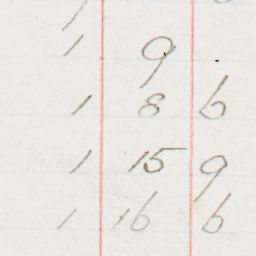 1 9
1 8 6
1 15 9
1 16 6